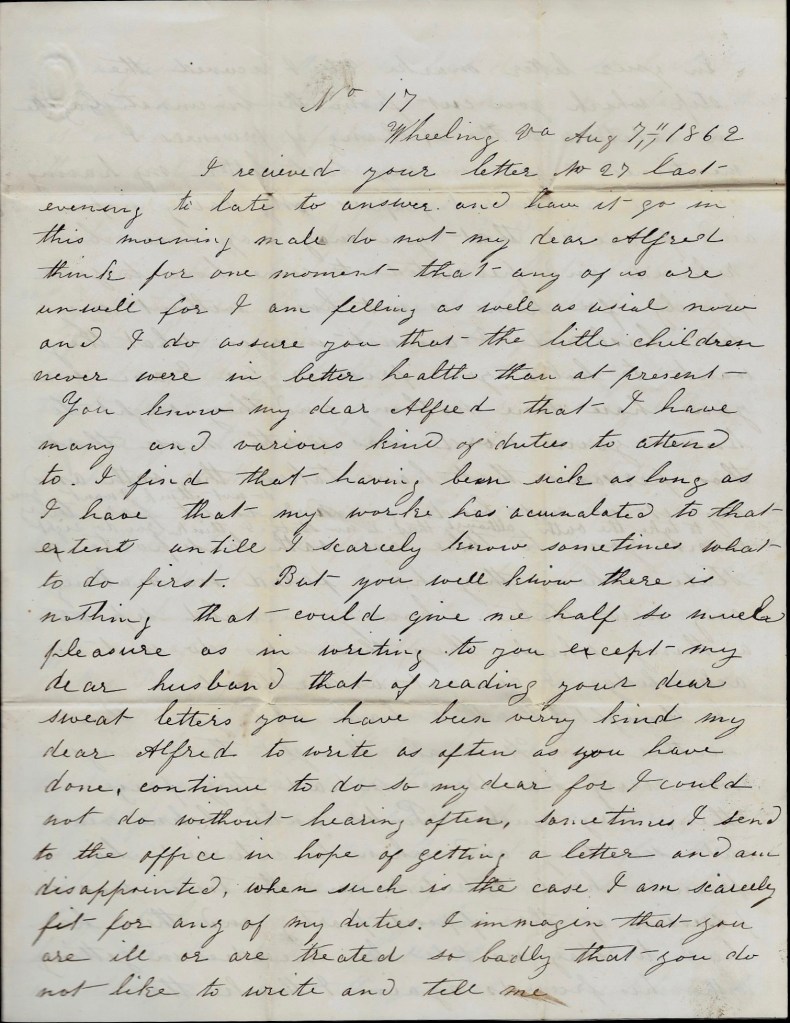 No 17
Wheeling Va Aug 7th, 1862
I recieved your letter No 27 last
evening to late to answer. and have it go in
this morning male do not my dear Alfred
think for one moment that any of us are
unwell for I am felling as well as usial now
and I do assure you that the littli children
never were in better health than at present
You know my dear Alfred that I have
many and various kind of duties to attend
to. I find that having been sick as long as
I have that my worke has acumalated to that
extent untill I scarcely know sometimes what
to do first. But you well know there is
nothing that could give me half so much
pleasure as in writing to you except my
dear husband that of reading your dear
sweat letters you have been verry kind my
dear Alfred to write as often as you have
done, continue to do so my dear for I could
not do without hearing often, sometimes I send
to the office in hope of getting a letter and am
disappointed, when such is the case I am scarcely
fit for any of my duties. I immagin that you
are ill or are treated so badly that you do
not like to write and tell me